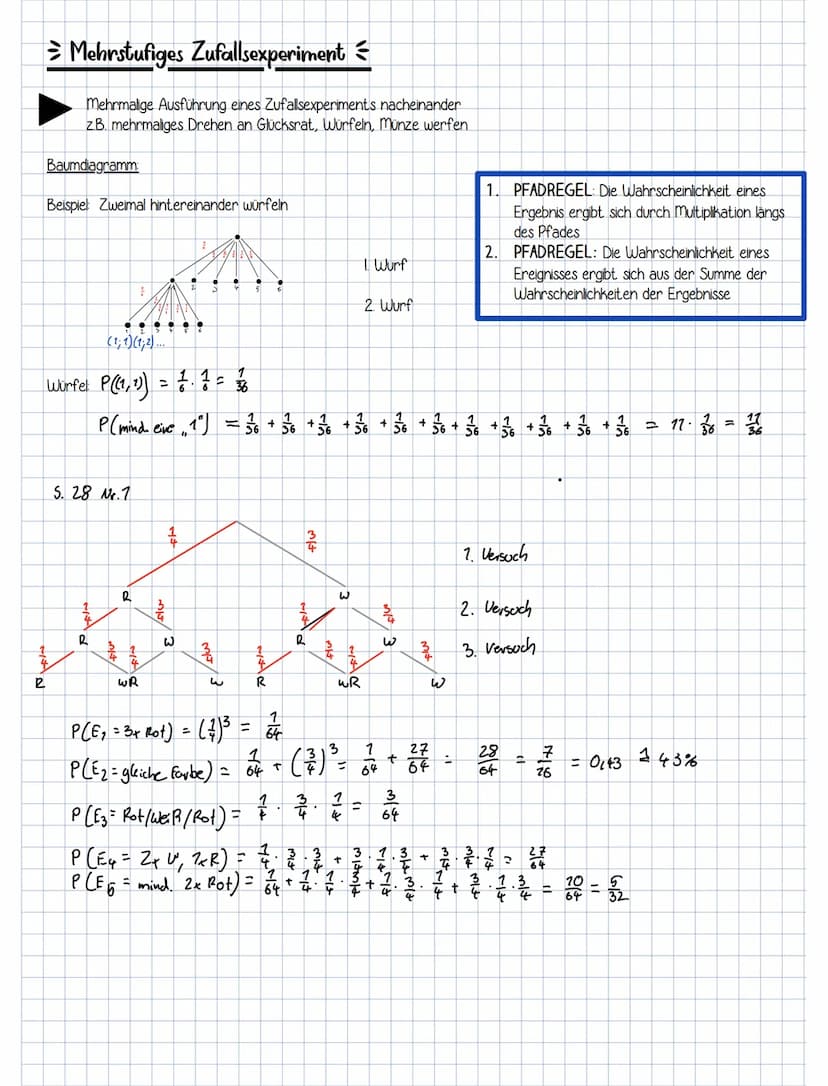 Mehrstufiges Zufallsexperiment
Mehrmalige Ausführung eines Zufallsexperiments nacheinander
z.B. mehrmaliges Drehen an Glücksrat, Würfeln, Münze werfen
Baumdiagramm:
Beispiel: Zweimal hintereinander würfeln
1. PFADREGEL: Die Wahrscheinlichkeit eines
Ergebnis ergibt sich durch Multiplikation längs
des Pfades
2. PFADREGEL: Die Wahrscheinlichkeit eines
Ereignisses ergibt sich aus der Summe der
Wahrscheinlichkeiten der Ergebnisse
1. Wurf
1 2 3 4 5 6
2. Wurf
1 2 3 4 5 6
(1;1)(1;2)...
Würfel: P((1,1)) = 1/6 · 1/6 = 1/36
P(mind. eine „1") = 1/36 + 1/36 + 1/36 + 1/36 + 1/36 + 1/36 + 1/36 + 1/36 + 1/36 + 1/36 + 1/36 = 11 · 1/36 = 11/36
S. 28 Nr. 1
1/4 3/4
1. Versuch
R W
1/4 3/4 1/4 3/4
2. Versuch
R W R W
1/4 3/4 1/4 3/4 1/4 3/4 1/4 3/4
3. Versuch
R W R W R W R W
P(E1 = 3x Rot) = (1/4)³ = 1/64
P(E2 = gleiche Farbe) = 1/64 + (3/4)³ = 1/64 + 27/64 = 28/64 = 7/16 = 0,43 ≙ 43%
P(E3 = Rot/Weiß/Rot) = 1/4 · 3/4 · 1/4 = 3/64
P(E4 = 2x W, 1xR) = 1/4 · 3/4 · 3/4 + 3/4 · 1/4 · 3/4 + 3/4 · 3/4 · 1/4 = 27/64
P(E5 = mind. 2x Rot) = 1/64 + 1/4 · 1/4 · 3/4 + 1/4 · 3/4 · 1/4 + 3/4 · 1/4 · 3/4 = 10/64 = 5/32